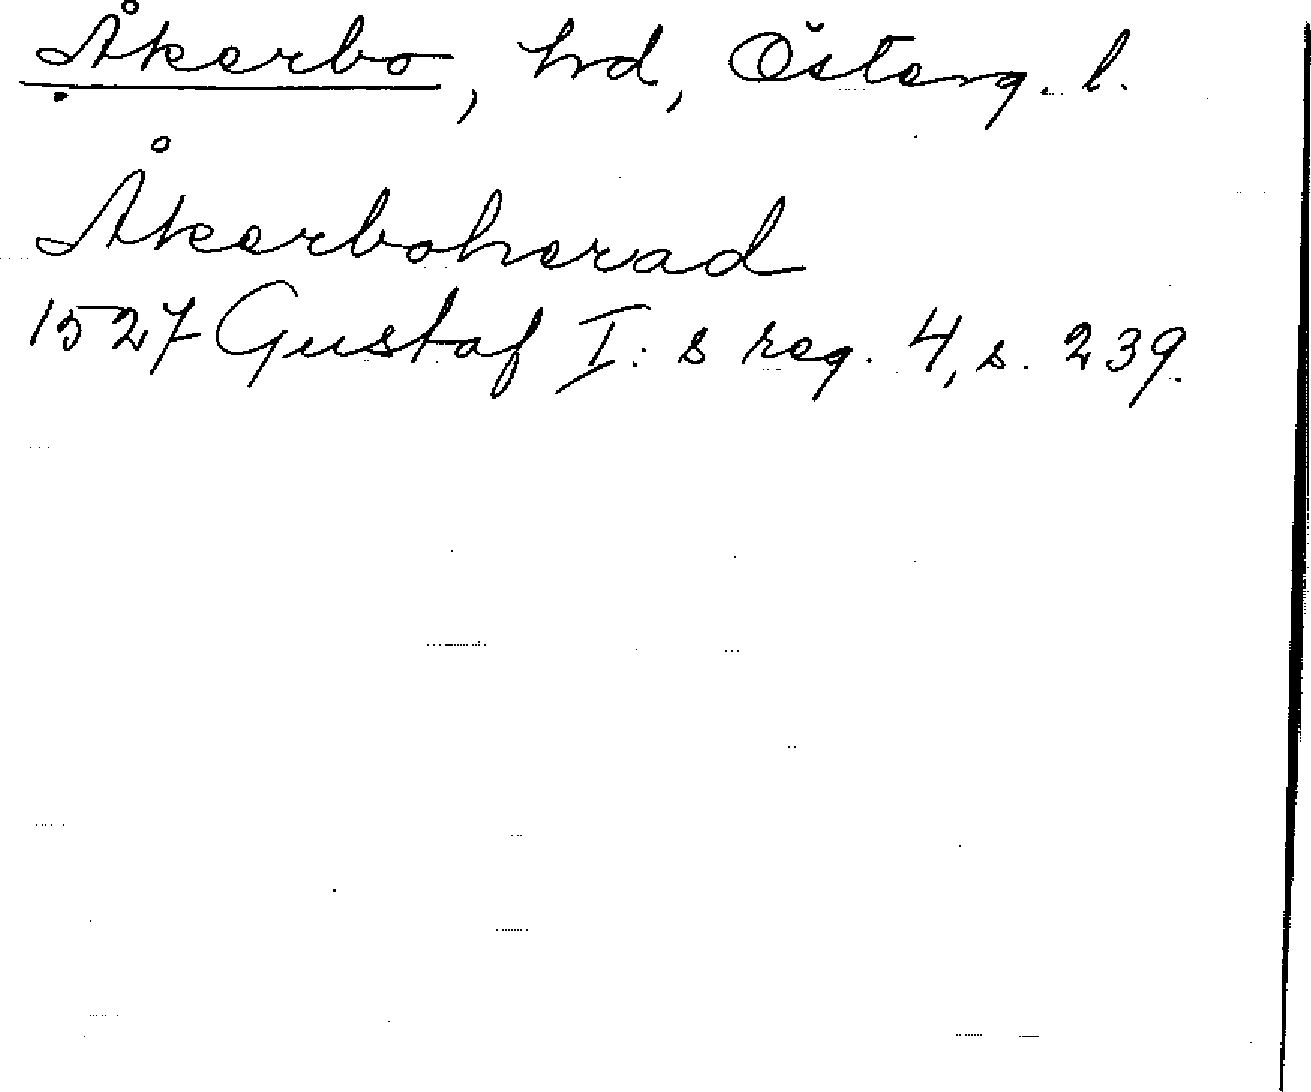 Åkerbo, hrd, Österg. l.
Åkerboherad
1527 Gustaf I:s reg. 4, s. 239.